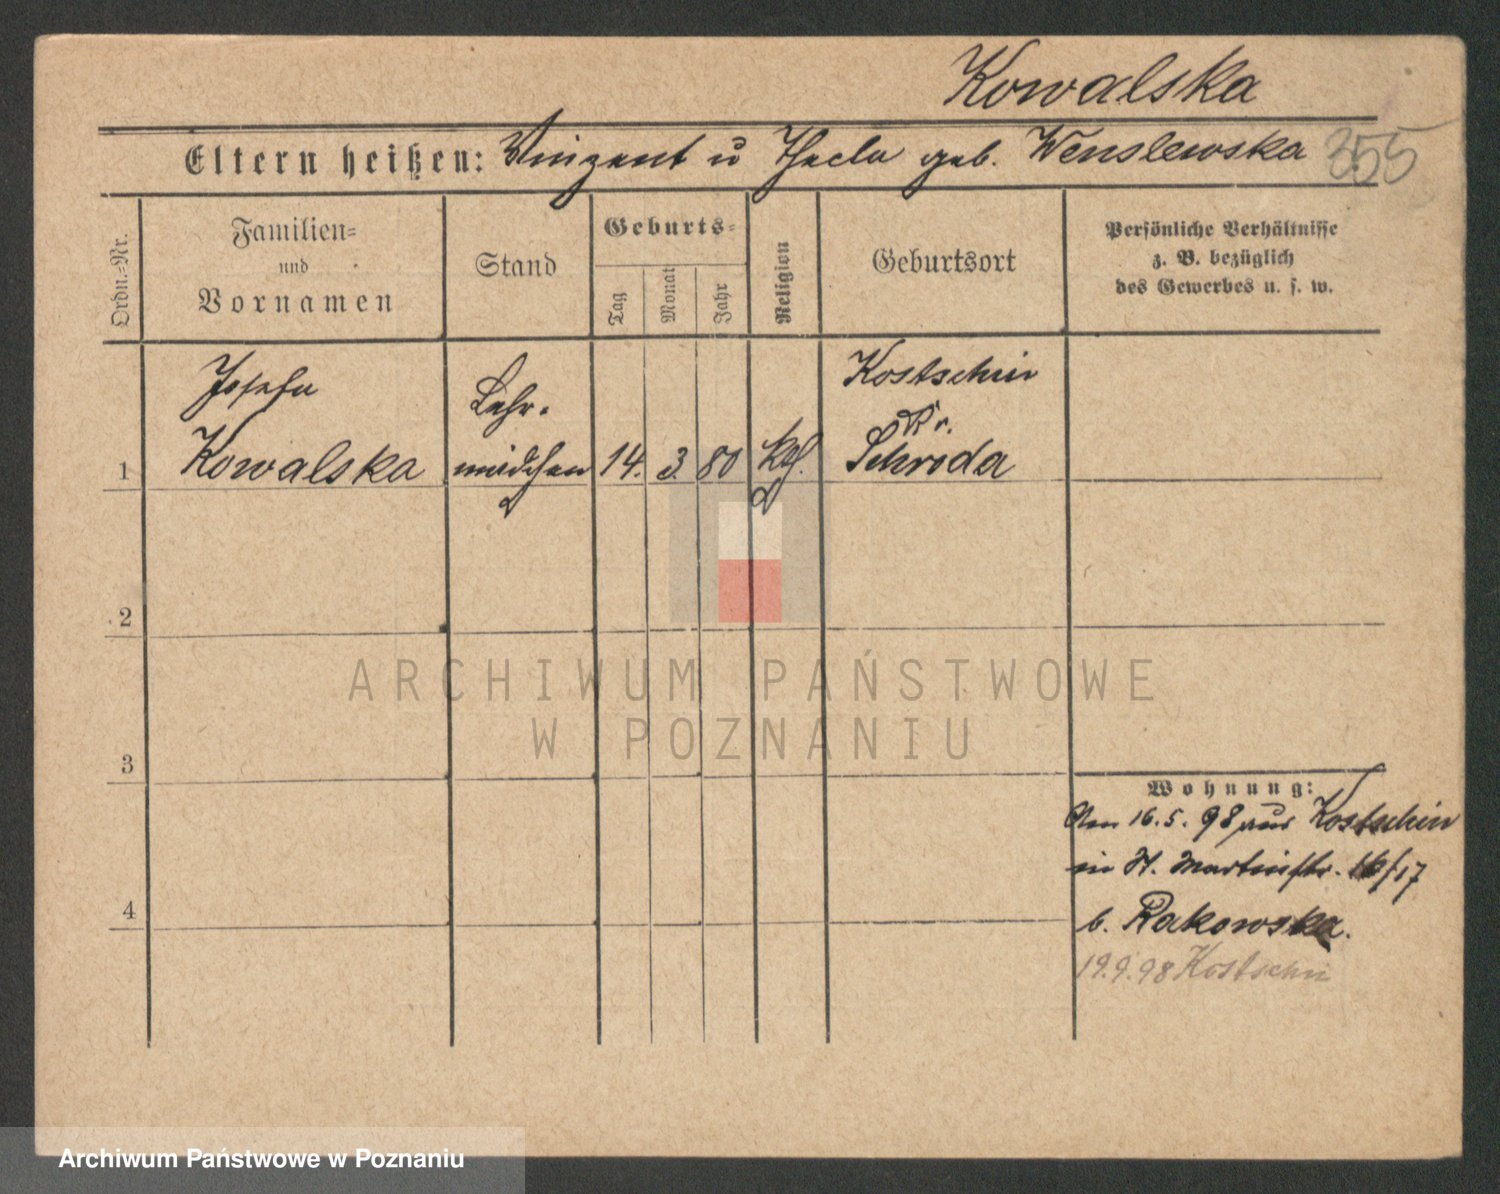 Kowalska
Eltern heißen: Vinzent u Thecla geb. Wenslewska 355
Ordn.-Nr.
Familien-
und
Vornamen
Stand
Geburts-
Tag
Monat
Jahr
Religion
Geburtsort
Persönliche Verhältnisse
z. B. bezüglich
des Gewerbes u. s. w.
1
Josefa
Kowalska
Lehr-
mädchen
14.
3.
80
kath.
Kostschin
Kr.
Schroda
2
ARCHIWUM PAŃSTWOWE
W POZNANIU
3
4
Wohnung:
Am 16.5.98 aus Kostschin
in St. Martinstr. 16/17
b. Rakowska.
19.9.98 Kostschin
Archiwum Państwowe w Poznaniu